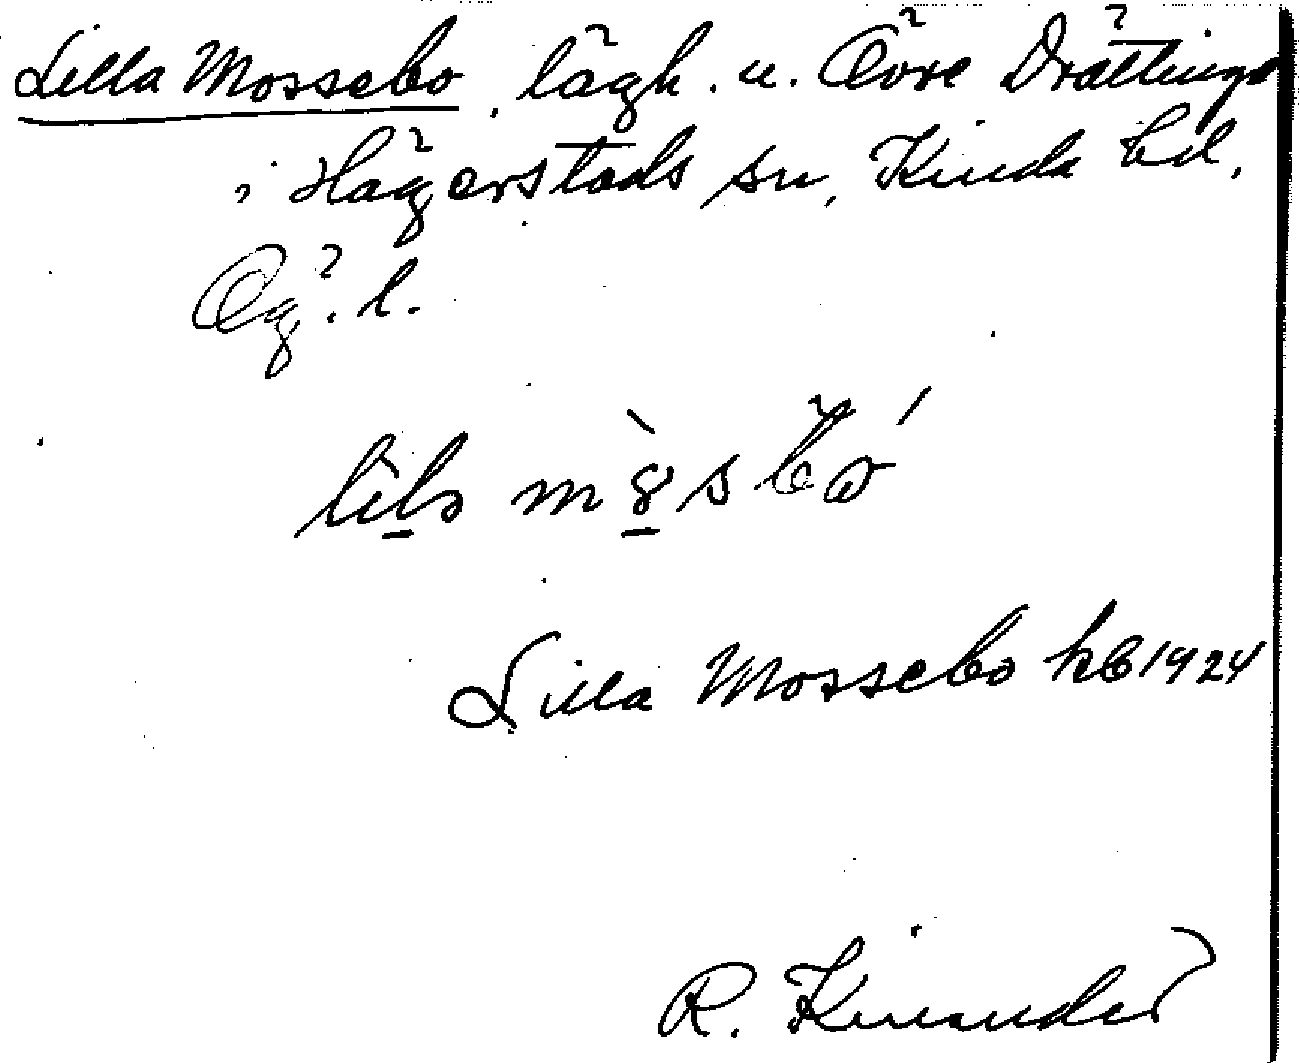 Lilla Mossebo, lägh. u. Övre Drättinge
i Hägerstads sn, Kinda hd,
Ög. l.
lìlɔ
Lilla Mossebo kb 1924
R. Kinander